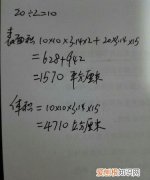 20÷2=10
表面积 10×10×3.14×2+20×3.14×15
=628+942
=1570 平方厘米
体积=10×10×3.14×15
=4710 立方厘米